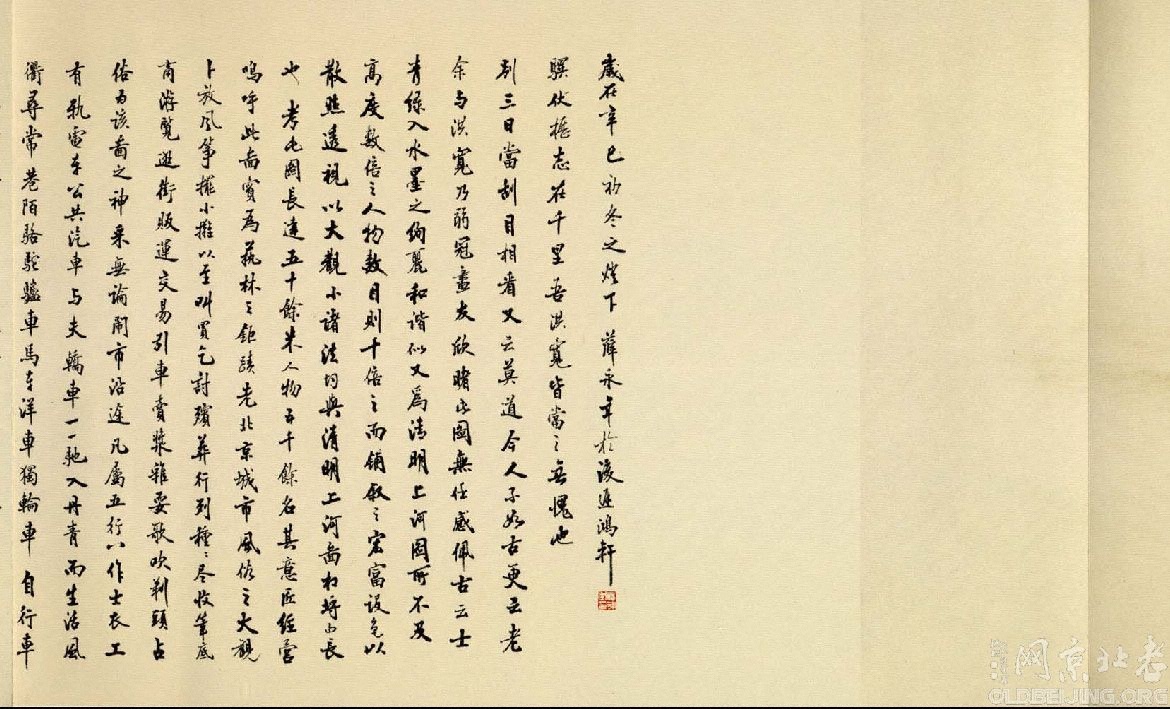 衢尋常巷陌駱駝驢車馬車洋車獨輪車 自行車
有軌電車公共汽車与夫轎車一一馳入丹青而生活風
俗为該圖之神采無論鬧市沿途凡屬五行八作士农工
商游覽逛街販運交易引車賣漿雜耍歌吹剃頭占
卜放風箏擺小攤以至叫買乞討殯葬行列種々尽收筆底
嗚呼此圖實為藝林之鉅蹟老北京城市風俗之大觀
也 考此圖長達五十餘米人物五千餘名其意匠經營
散點透視以大觀小諸法均與清明上河圖相埒而長
高度數倍之人物数目則十倍之而鋪叙之宏富設色以
青綠入水墨之絢麗和諧似又為清明上河圖所不及
余与洪寬乃弱冠畫友欣睹此圖無任感佩古云士
别三日當刮目相看又云莫道今人不如古更云老
驥伏櫪志在千里吾洪寬皆當之無愧也
歲在辛巳初冬之燈下 薛永年於還鴻軒
网京北老
OLDBEIJING.ORG